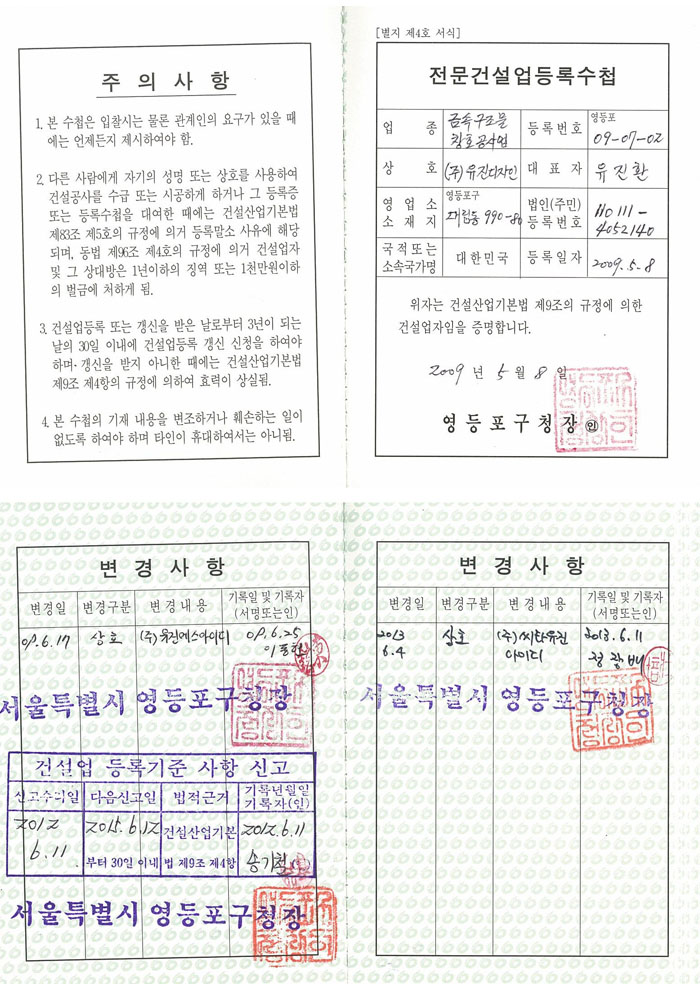 주 의 사 항
1. 본 수첩은 입찰시는 물론 관계인의 요구가 있을 때
에는 언제든지 제시하여야 함.
2. 다른 사람에게 자기의 성명 또는 상호를 사용하여
건설공사를 수급 또는 시공하게 하거나 그 등록증
또는 등록수첩을 대여한 때에는 건설산업기본법
제83조 제5호의 규정에 의거 등록말소 사유에 해당
되며, 동법 제96조 제4호의 규정에 의거 건설업자
및 그 상대방은 1년이하의 징역 또는 1천만원이하
의 벌금에 처하게 됨.
3. 건설업등록 또는 갱신을 받은 날로부터 3년이 되는
날의 30일 이내에 건설업등록 갱신 신청을 하여야
하며· 갱신을 받지 아니한 때에는 건설산업기본법
제9조 제4항의 규정에 의하여 효력이 상실됨.
4. 본 수첩의 기재 내용을 변조하거나 훼손하는 일이
없도록 하여야 하며 타인이 휴대하여서는 아니됨.
[별지 제4호 서식]
전문건설업등록수첩
업 종 금속구조물 창호공사업 등록번호 영등포 09-07-02
상 호 (주)유진디자인 대 표 자 유진환
영 업 소 소 재 지 영등포구 대림동 990-80 법인(주민) 등록번호 110111-4052140
국적 또는 소속국가명 대한민국 등록일자 2009.5.8
위자는 건설산업기본법 제9조의 규정에 의한
건설업자임을 증명합니다.
2009 년 5 월 8 일
영등포구청장 인
변 경 사 항
변경일 변경구분 변경내용 기록일 및 기록자 (서명또는인)
09.6.17 상호 (주)유진에스아이디 09.6.25
서울특별시 영등포구청장
건설업 등록기준 사항 신고
신고수리일 다음신고일 법적근거 기록년월일 기록자(인)
2012 6.11 2015.6.12 부터 30일 이내 건설산업기본 법 제9조 제4항 2012.6.11 송기철
서울특별시 영등포구청장
변 경 사 항
변경일 변경구분 변경내용 기록일 및 기록자 (서명또는인)
2013 6.4 상호 (주)씨타유진 아이디 2013.6.11 정광배
서울특별시 영등포구청장